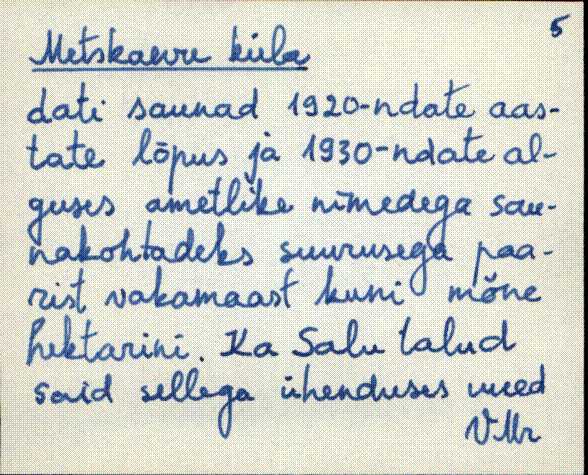 5
Metskaevu küla
dati saunad 1920-ndate aas-
tate lõpus ja 1930-ndate al-
guses ametlike nimedega sau-
nakohtadeks suurusega paa-
rist vakamaast kuni mõne
hektarini. Ka Salu talud
said sellega ühenduses uued
VMr